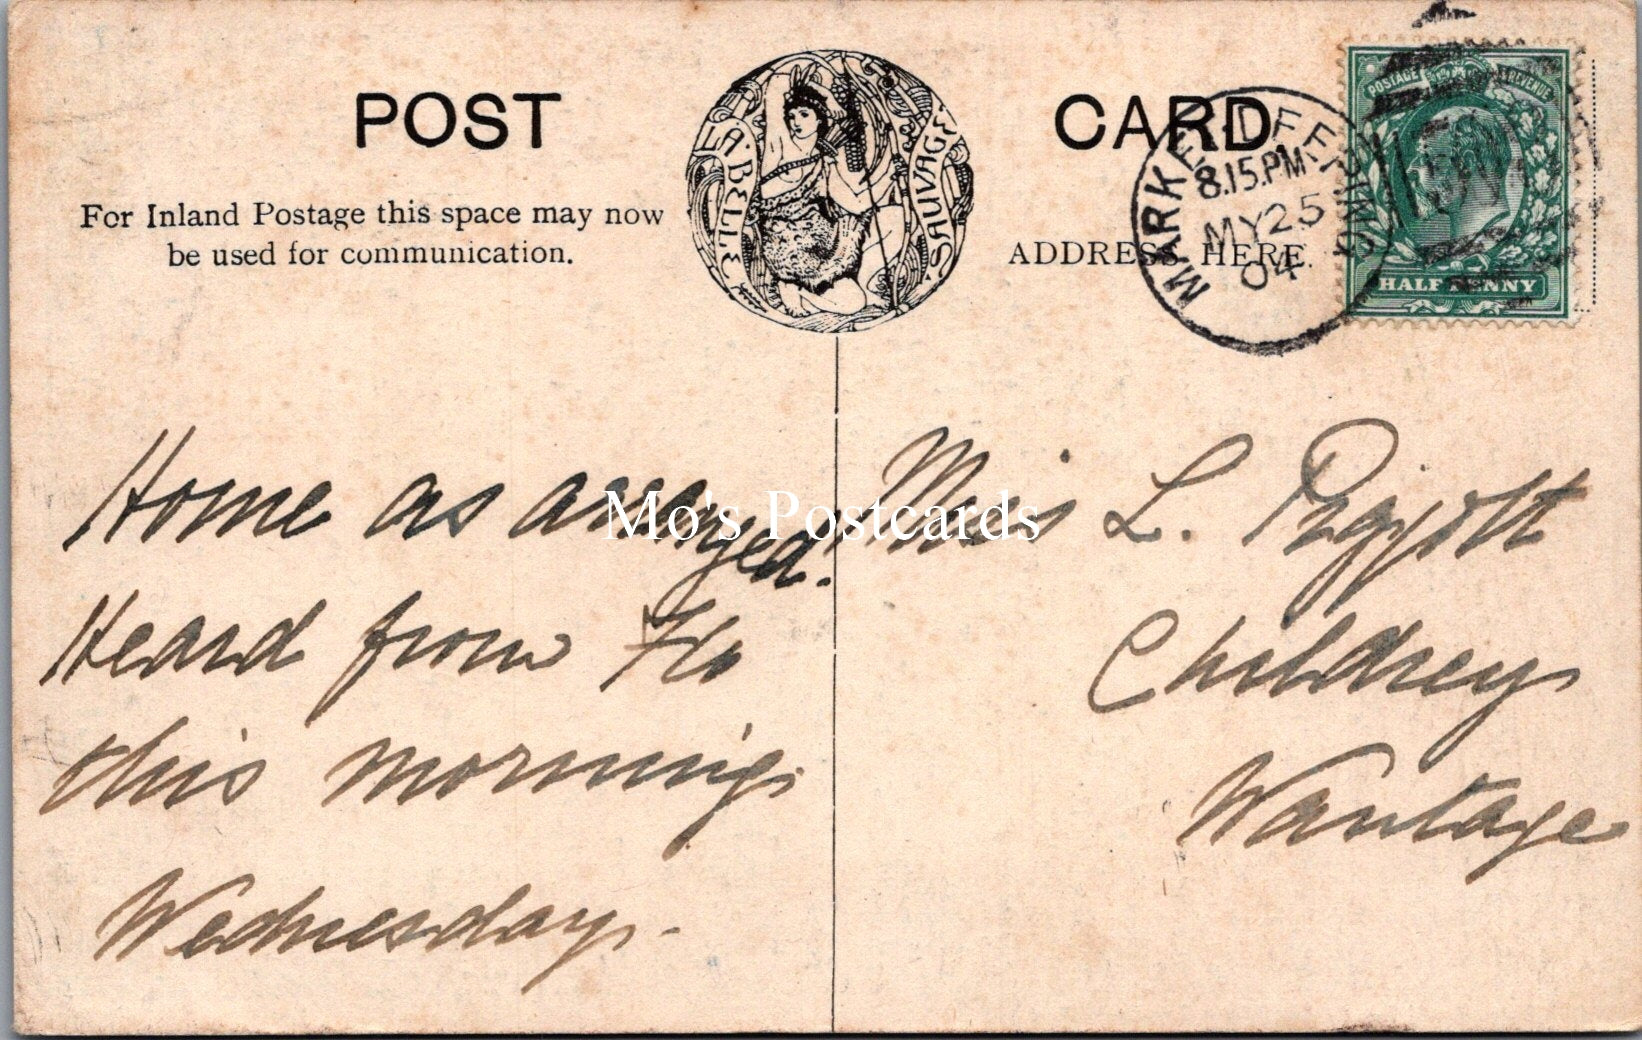 POST
CARD
LA·BELLE
SAUVAGE
For Inland Postage this space may now
be used for communication.
ADDRESS HERE.
MARKET DEEPING
8.15.PM
MY 25
04
POSTAGE
REVENUE
HALF PENNY
Home as arranged.
Heard from Flo
this morning
Wednesday.
Miss L. Piggott
Childrey
Wantage
Mo's Postcards